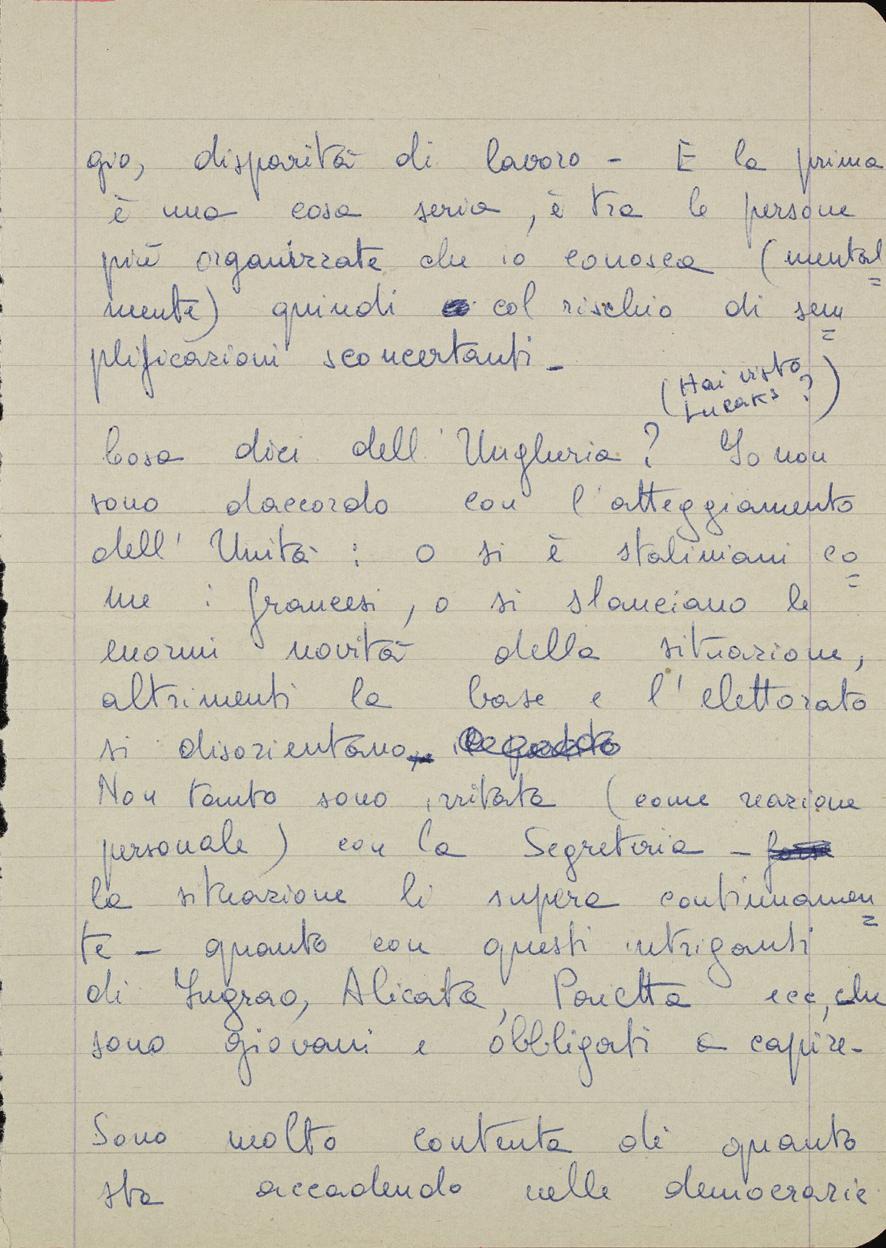 gio, disparità di lavoro - È la prima
è una cosa seria, è tra le persone
più organizzate che io conosca (mental
mente) quindi col rischio di sem
plificazioni sconcertanti -
(Hai visto
Lucaks ?)
Cosa dici dell'Ungheria ? Io non
sono daccordo con l'atteggiamento
dell'Unità : o si è staliniani co
me i francesi, o si slanciano le
enormi novità della situazione,
altrimenti la base e l'elettorato
si disorientano
Non tanto sono irritata (come reazione
personale) con la Segreteria -
la situazione li supera continuamen
te - quanto con questi intriganti
di Ingrao, Alicata, Paietta ecc, che
sono giovani e obbligati a capire -
Sono molto contenta di quanto
sta accadendo nelle democrazie